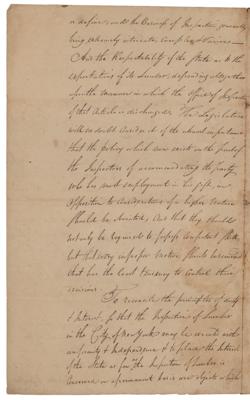 in defence, under the Concerns of Inspection, generally
being extremely intricate, complex & various
And the Respectability of the State as to the
exportation of its Lumber, depending altogether
on the manner in which the office of Inspection
of that Article is discharged. The Legislature
will no doubt consider it of the utmost importance
that the policy which now exists on the part of
the Inspectors of accommodating the Party
who has most employment in his gift, in
opposition to considerations of a higher nature
should be
And that they should
not only be required to possess competent skill,
but that every improper motive should be removed
that has the least tendency to control their
decisions.
To reconcile the principles of Duty
& Interest, so that the Inspection of Lumber
in the City of New York may be executed with
uniformity & Independence & to place the Interest
of the State as far as the Inspection of Lumber is
concerned on a permanent basis are objects which